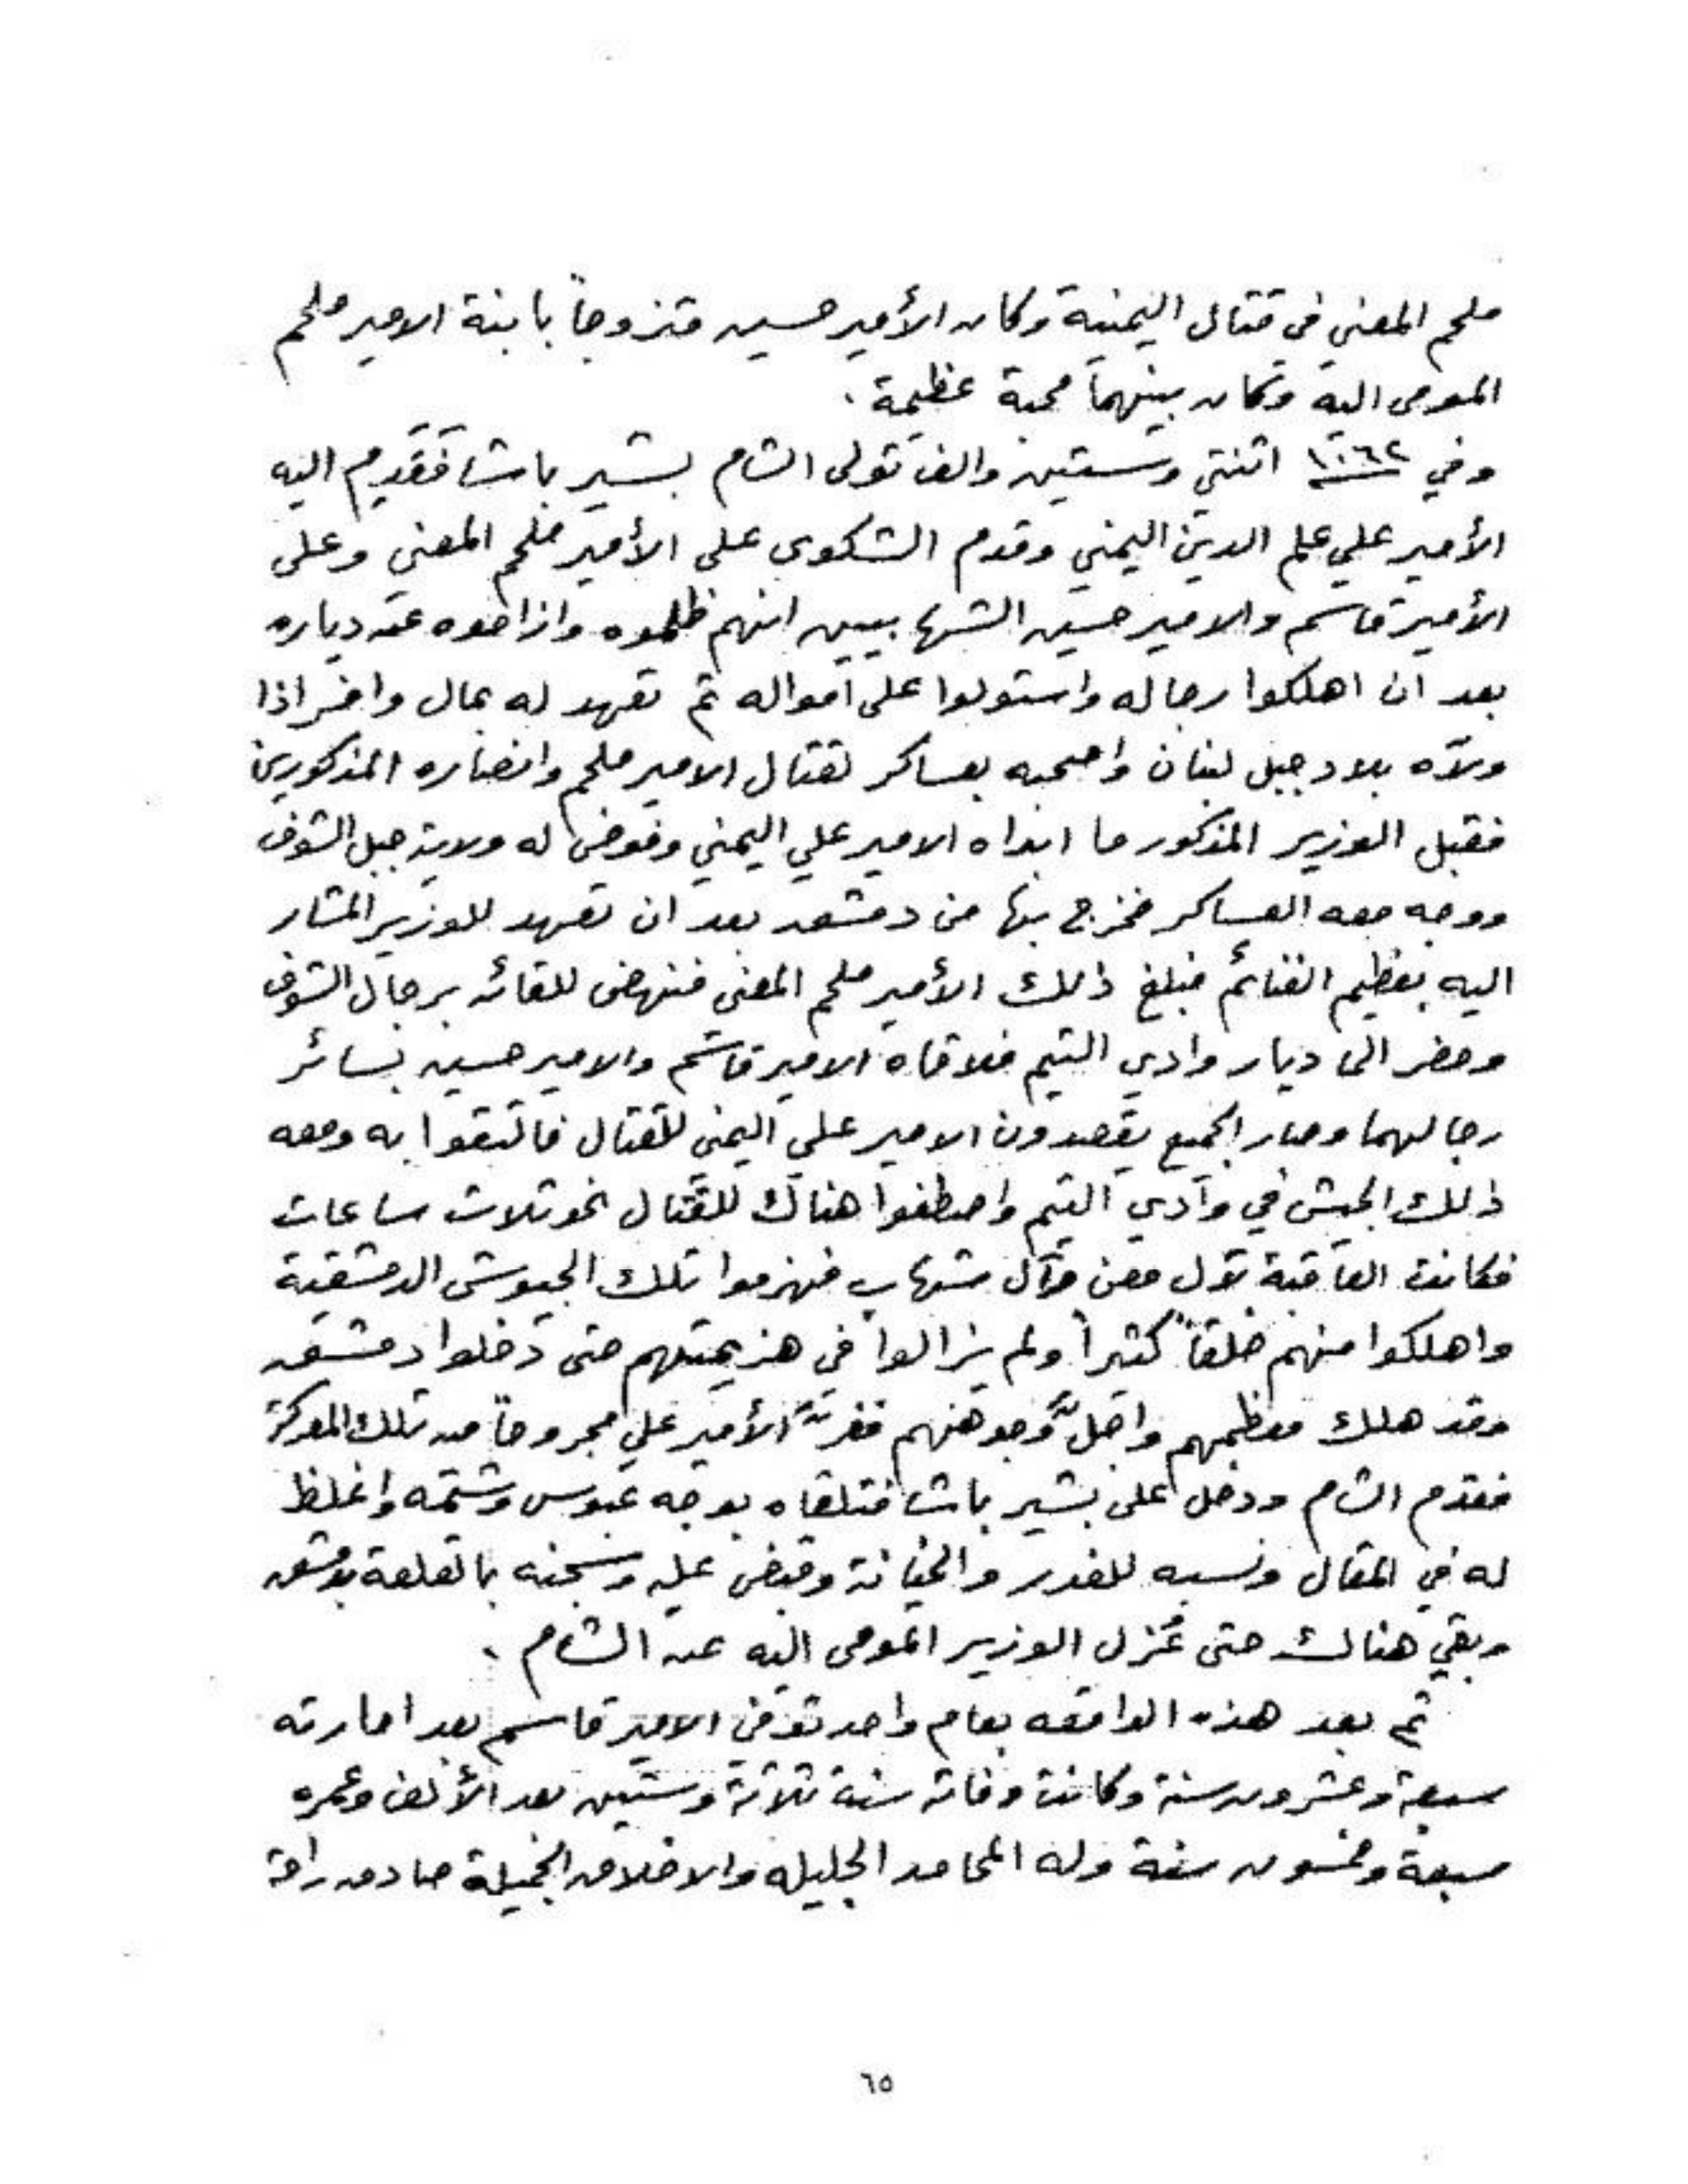 ملحم المعني في قتال اليمنية وكان الأمير حسين متزوجاً بابنة الامير ملحم
المومى اليه وكان بينهما محبة عظيمة .
وفي ١٠٦٢ اثنتي وستين والف تولى الشام بشير باشا فقدم اليه
الأمير علي علم الدين اليمني وقدم الشكوى على الأمير ملحم المعني وعلى
الأمير قاسم والامير حسين الشهابيين انهم ظلموه وازاحوه عن دياره
بعد ان اهلكوا رجاله واستولوا على امواله ثم تعهد له بمال وافر اذا
ولاّه بلاد جبل لبنان واصحبه بعساكر لقتال الامير ملحم وانصاره المذكورين
فقبل الوزير المذكور ما ابداه الامير علي اليمني وفوض له ولاية جبل الشوف
ووجه معه العساكر فخرج بها من دمشق بعد ان تعهد للوزير المشار
اليه بعظيم الغنائم فبلغ ذلك الأمير ملحم المعني فنهض للقائه برجال الشوف
وحضر الى ديار وادي التيم فلاقاه الامير قاسم والامير حسين بسائر
رجالهما وصار الجميع يقصدون الامير علي اليمني للقتال فالتقوا به ومعه
ذلك الجيش في وادي التيم واصطفوا هناك للقتال نحو ثلاث ساعات
فكانت العاقبة لآل معن وآل شهاب فهزموا تلك الجيوش الدمشقية
واهلكوا منهم خلقاً كثيراً ولم يزالوا في هزيمتهم حتى دخلوا دمشق
وقد هلك معظمهم واجلّ وجوههم ففرّ الأمير علي مجروحاً من تلك المعركة
فقدم الشام ودخل على بشير باشا فتلقاه بوجه عبوس وشتمه واغلظ
له في المقال ونسبه للغدر والخيانة وقبض عليه وسجنه بالقلعة بدمشق
وبقي هناك حتى عُزل الوزير المومى اليه عن الشام .
ثم بعد هذه الواقعه بعام واحد توفي الامير قاسم بعد امارته
سبعة وعشرون سنة وكانت وفاته سنة ثلاثة وستين بعد الألف وعمره
سبعة وخمسون سنة وله المحامد الجليله والاخلاق الجميلة صادق
٦٥